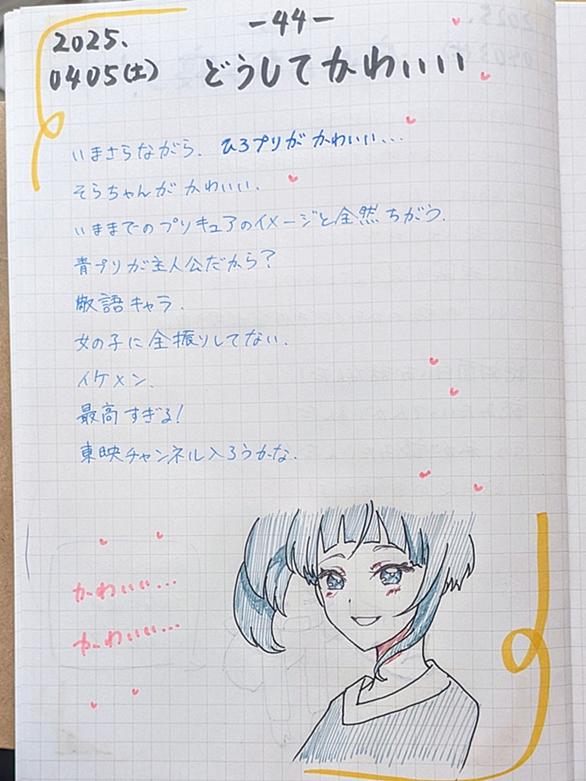 -44-
2025.
0405(土) どうしてかわいい
いまさらながら、ひろプリがかわいい...
そらちゃんがかわいい、
いままでのプリキュアのイメージと全然ちがう。
青プリが主人公だから?
敬語キャラ.
女の子に全振りしてない.
イケメン.
最高すぎる!
東映チャンネル入ろうかな.
かわいい...
かわいい...